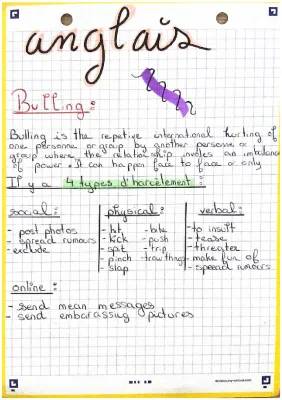 anglais
Bulling :
Bulling is the repetive international hurting of
one personne or group by another personne or
group where the relationship involves an imbalance
of power. It can happen face to face or only
Il y a 4 types d'harcèlement :
social : physical : verbal :
- post photos - hit - bite - to insult
- spread rumours - kick - push - tease
- exclude - spit - trip - threater
- pinch - trow things - make fun of
- slap - spread rumours
online :
- send mean messages
- send embarassing pictures